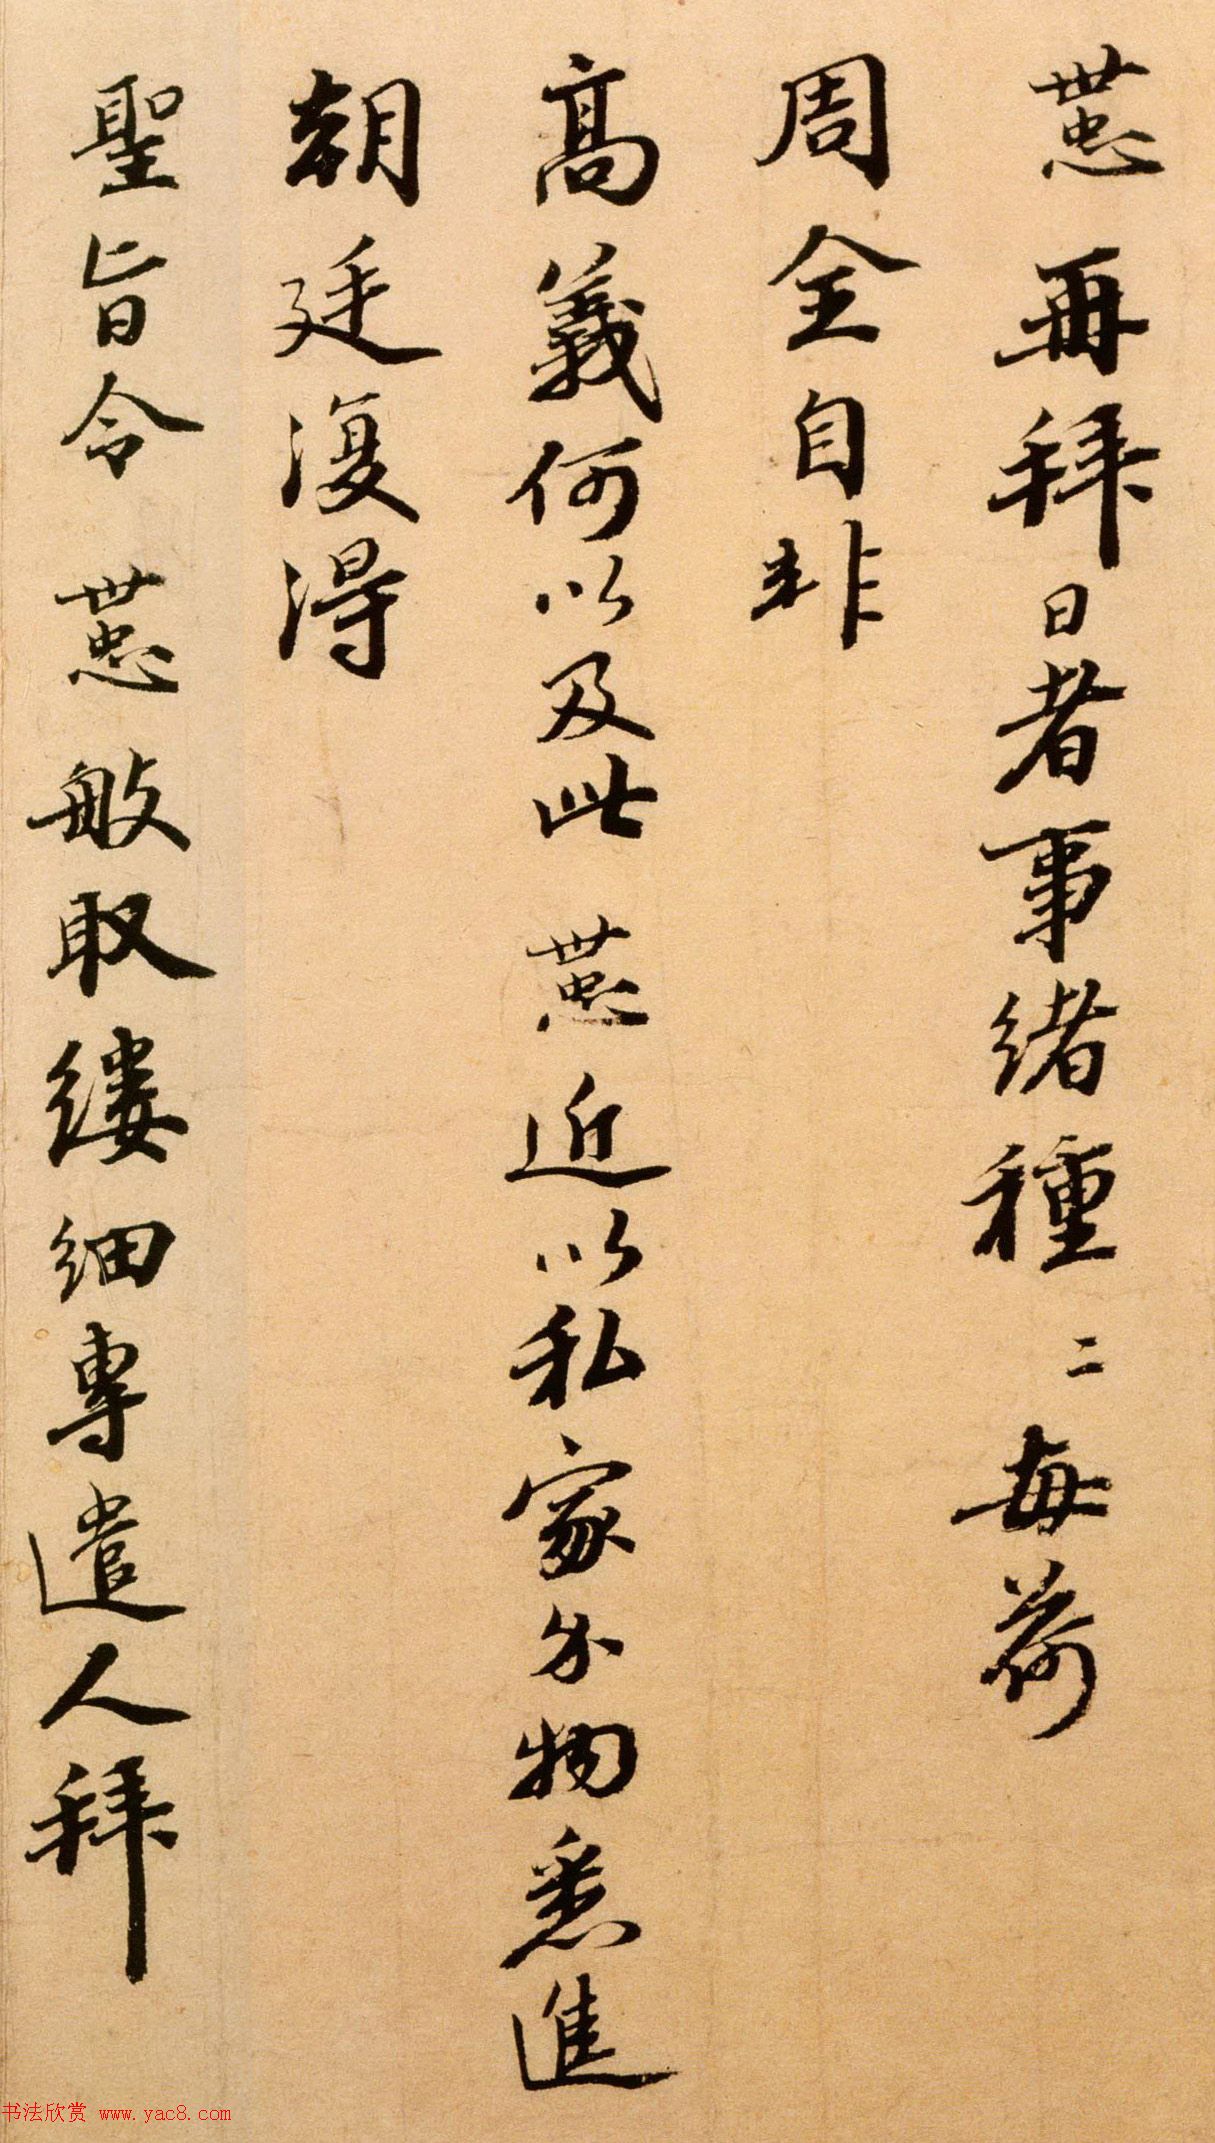 世忠再拜日者事緒種〻每荷
周全自非
高義何以及此世忠近以私家分物悉進
朝廷復得
聖旨令世忠般取縷細專遣人拜
书法欣赏 www.yac8.com